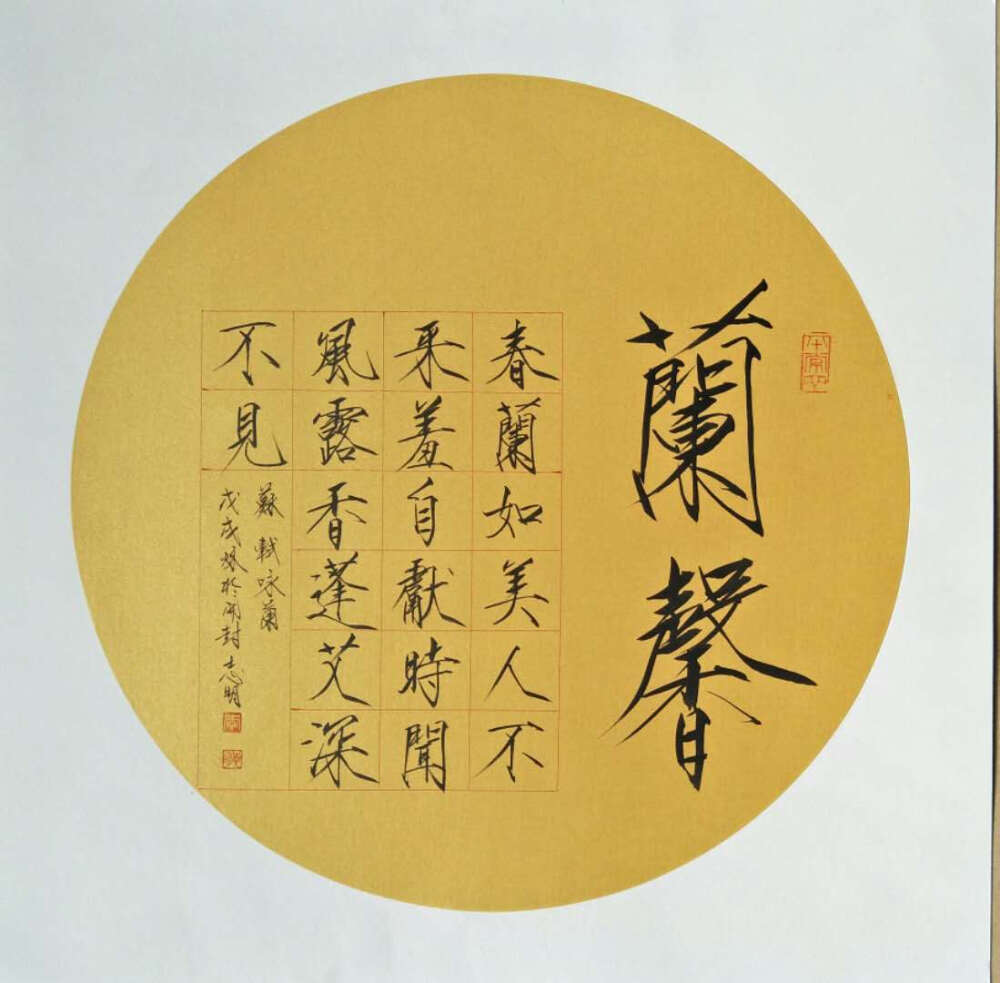 蘭馨
春蘭如美人不
采羞自獻時聞
風露香蓬艾深
不見
蘇軾咏蘭
戊戌 於開封志明